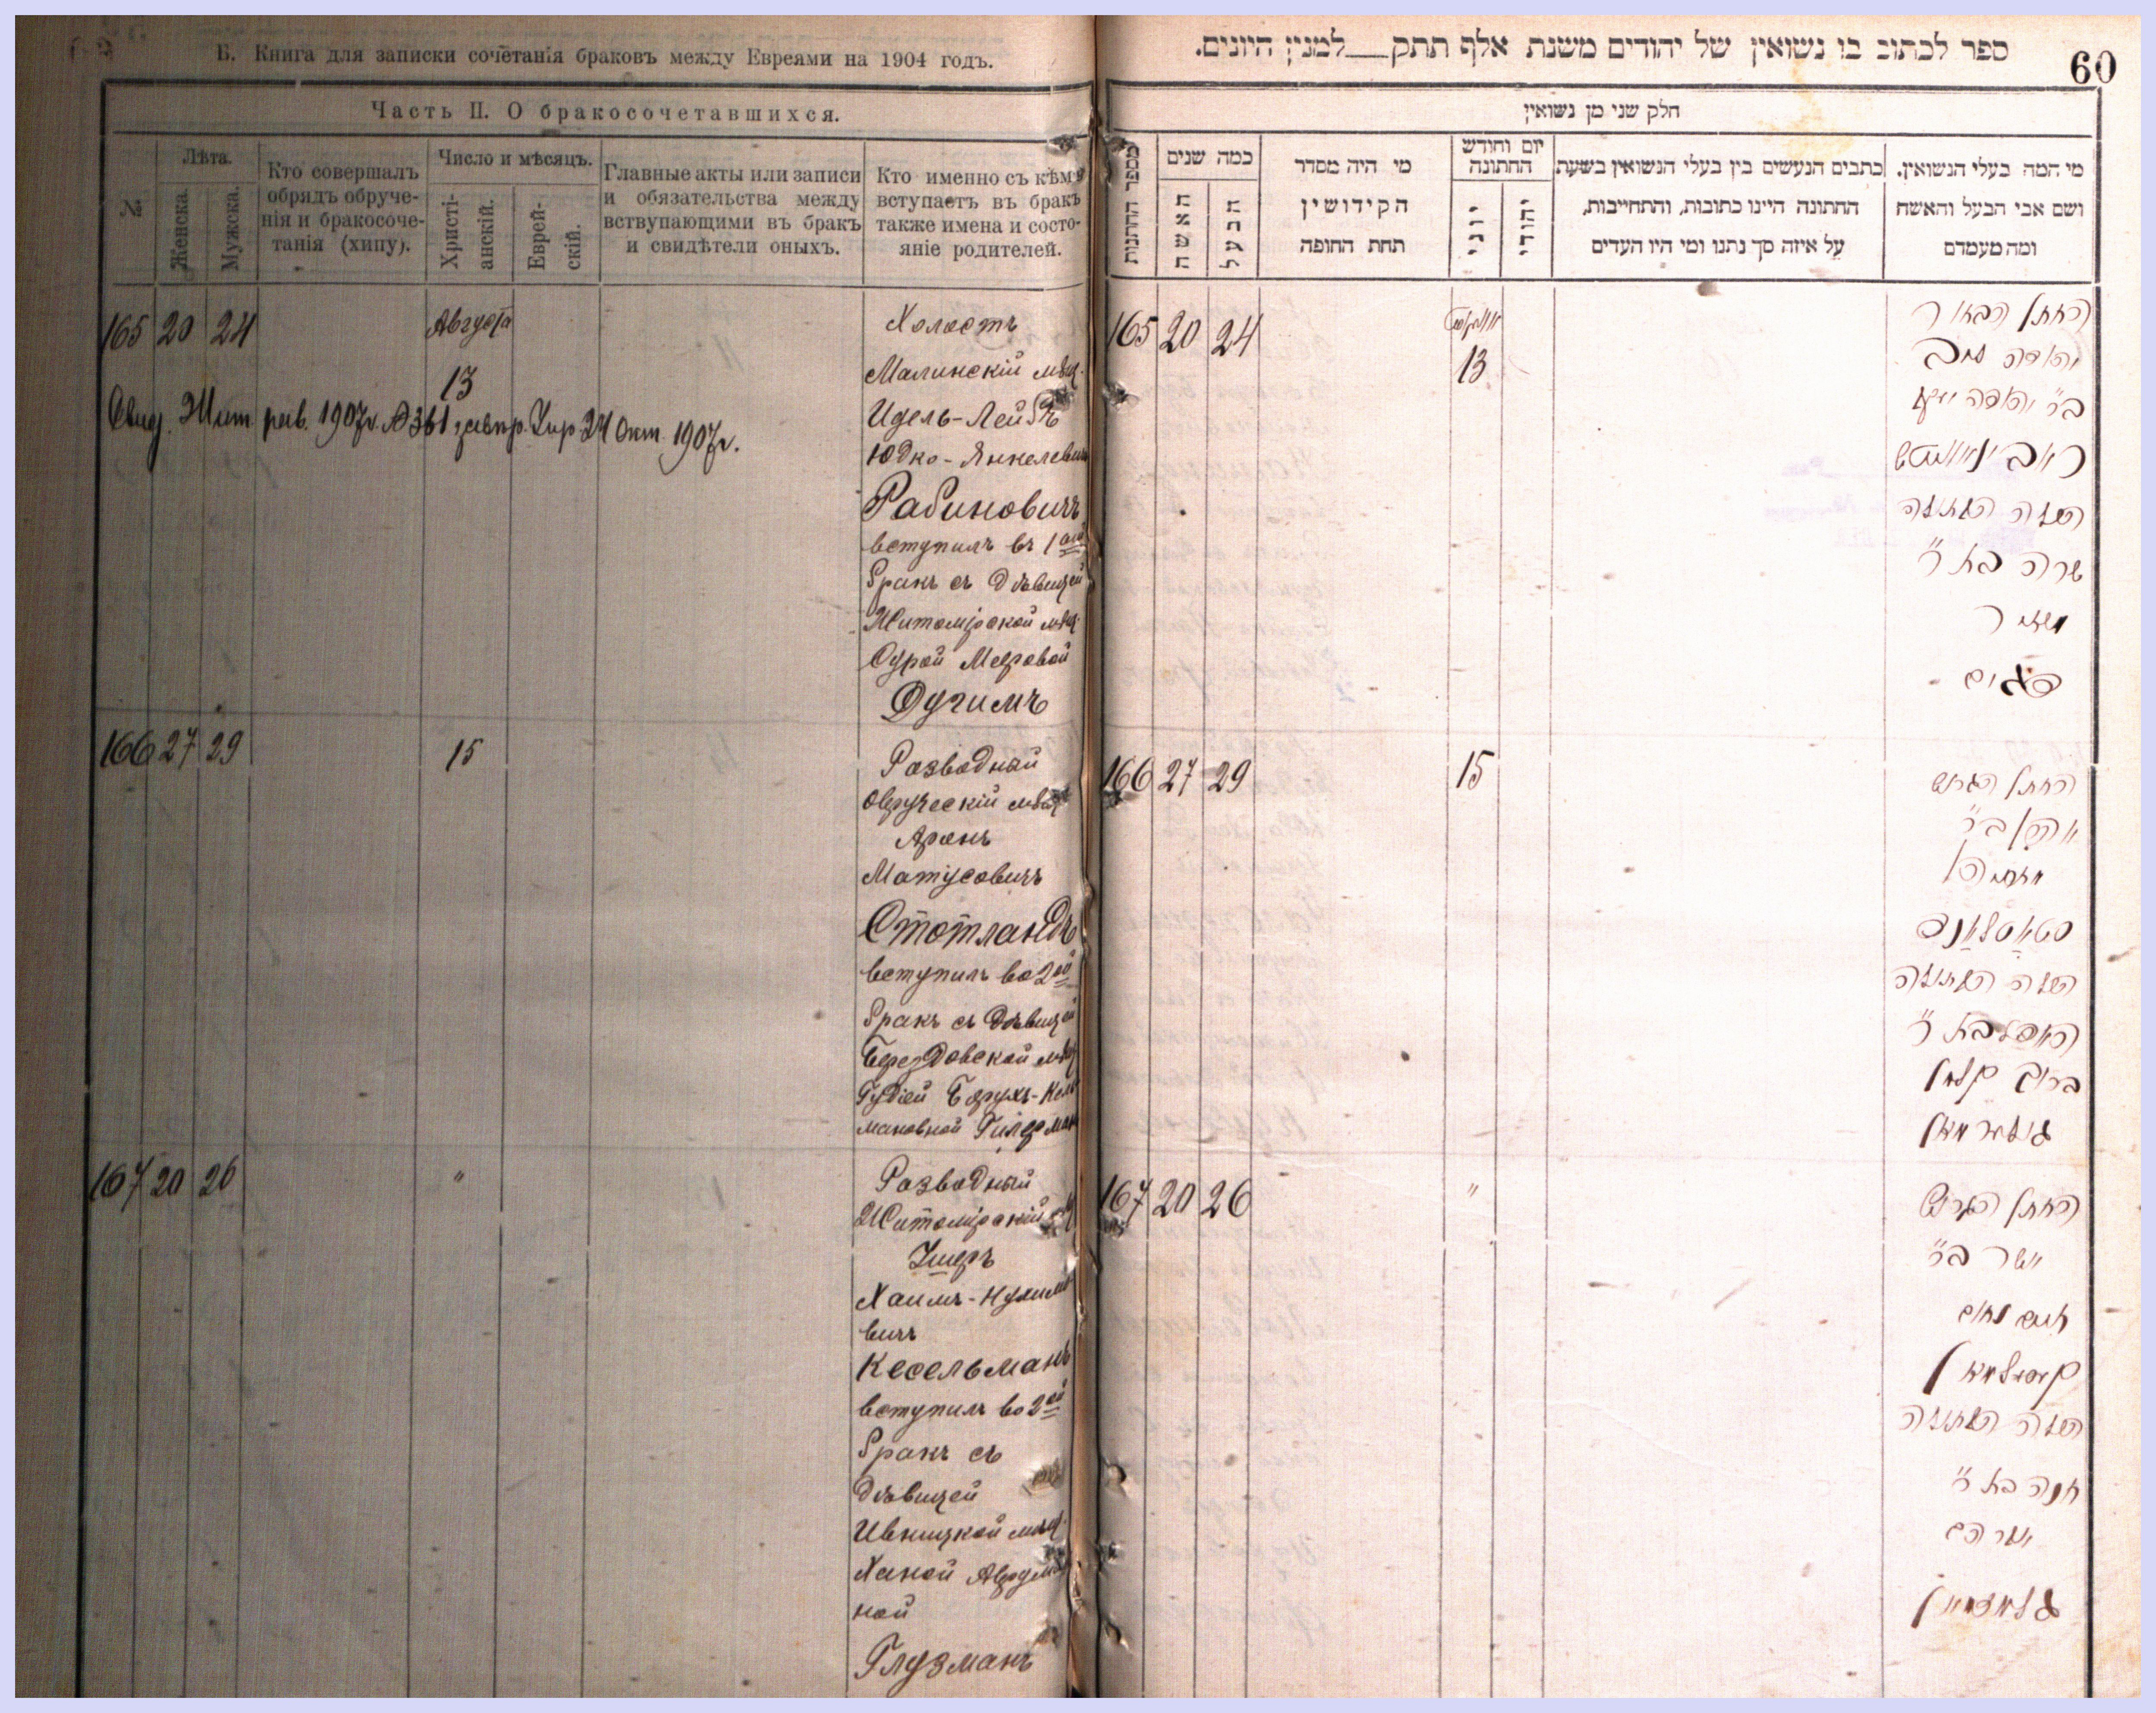 Б. Книга для записки сочетанія браковъ между Евреями на 1904 годъ.
Часть II. О бракосочетавшихся.
№
Лѣта.
Женска.
Мужска.
Кто совершалъ
обрядъ обруче-
нія и бракосоче-
танія (хипу).
Число и мѣсяцъ.
Христі-
анскій.
Еврей-
скій.
Главные акты или записи
и обязательства между
вствупающими въ бракъ
и свидѣтели оныхъ.
Кто именно съ кѣмъ
вступаетъ въ бракъ
также имена и состо-
яніе родителей.
165 20 24 Августа
13
Холостъ
Малинскій мѣщ.
Идель-Лейбъ
Юдко-Янкелевич
Рабиновичъ
вступилъ въ 1ый
бракъ съ дѣвицей
Житомірской мѣщ.
Сурой Мееровой
Дугимъ
Свид. Жит. рав. 1907г. № 361 24 Окт. 1907г.
166 27 29 15
Разводный
Овруческій мѣщ
Аронъ
Матусовичъ
Стотландъ
вступилъ во 2ой
бракъ съ дѣвицей
Берездовской мѣщ
Гудіей Борухъ-Кель
мановной
167 20 26 "
Разводный
Житомірскій
Ушеръ
Хаимъ-Нухимо
вичъ
Кесельманъ
вступилъ во 2ой
бракъ съ
дѣвицей
Ивницкой мѣщ.
Ханой Аврумов
ной
Глузманъ
60
ספר לכתוב בו נשואין של יהודים משנת אלף תתק למנין היונים.
חלק שני מן נשואין
מספר החתונות
כמה שנים
האשה
הבעל
מי היה מסדר
הקידושין
תחת החופה
יום וחודש
החתונה
יוני
יהודי
כתבים הנעשים בין בעלי הנשואין בשעת
החתונה היינו כתובות, והתחייבות,
על איזה סך נתנו ומי היו העדים
מי המה בעלי הנשואין,
ושם אבי הבעל והאשה
ומה מעמדם
165 20 24 אווגוסט
13
החתן הבחור
יהודה ליב
ב״ר יהודה יעקב
ראבינאוויטש
הכלה הבתולה
שרה בת ר״
מאיר
166 27 29 15
החתן הגרוש
אהרן ב״ר
מתתיהו
סטאטלאנד
הכלה הבתולה
בת ר״
ברוך קלמן
167 20 26 "
החתן הגרוש
אשר ב״ר
חיים נחום
קעסעלמאן
הכלה הבתולה
חנה בת ר״
אברהם
גלוזמאן